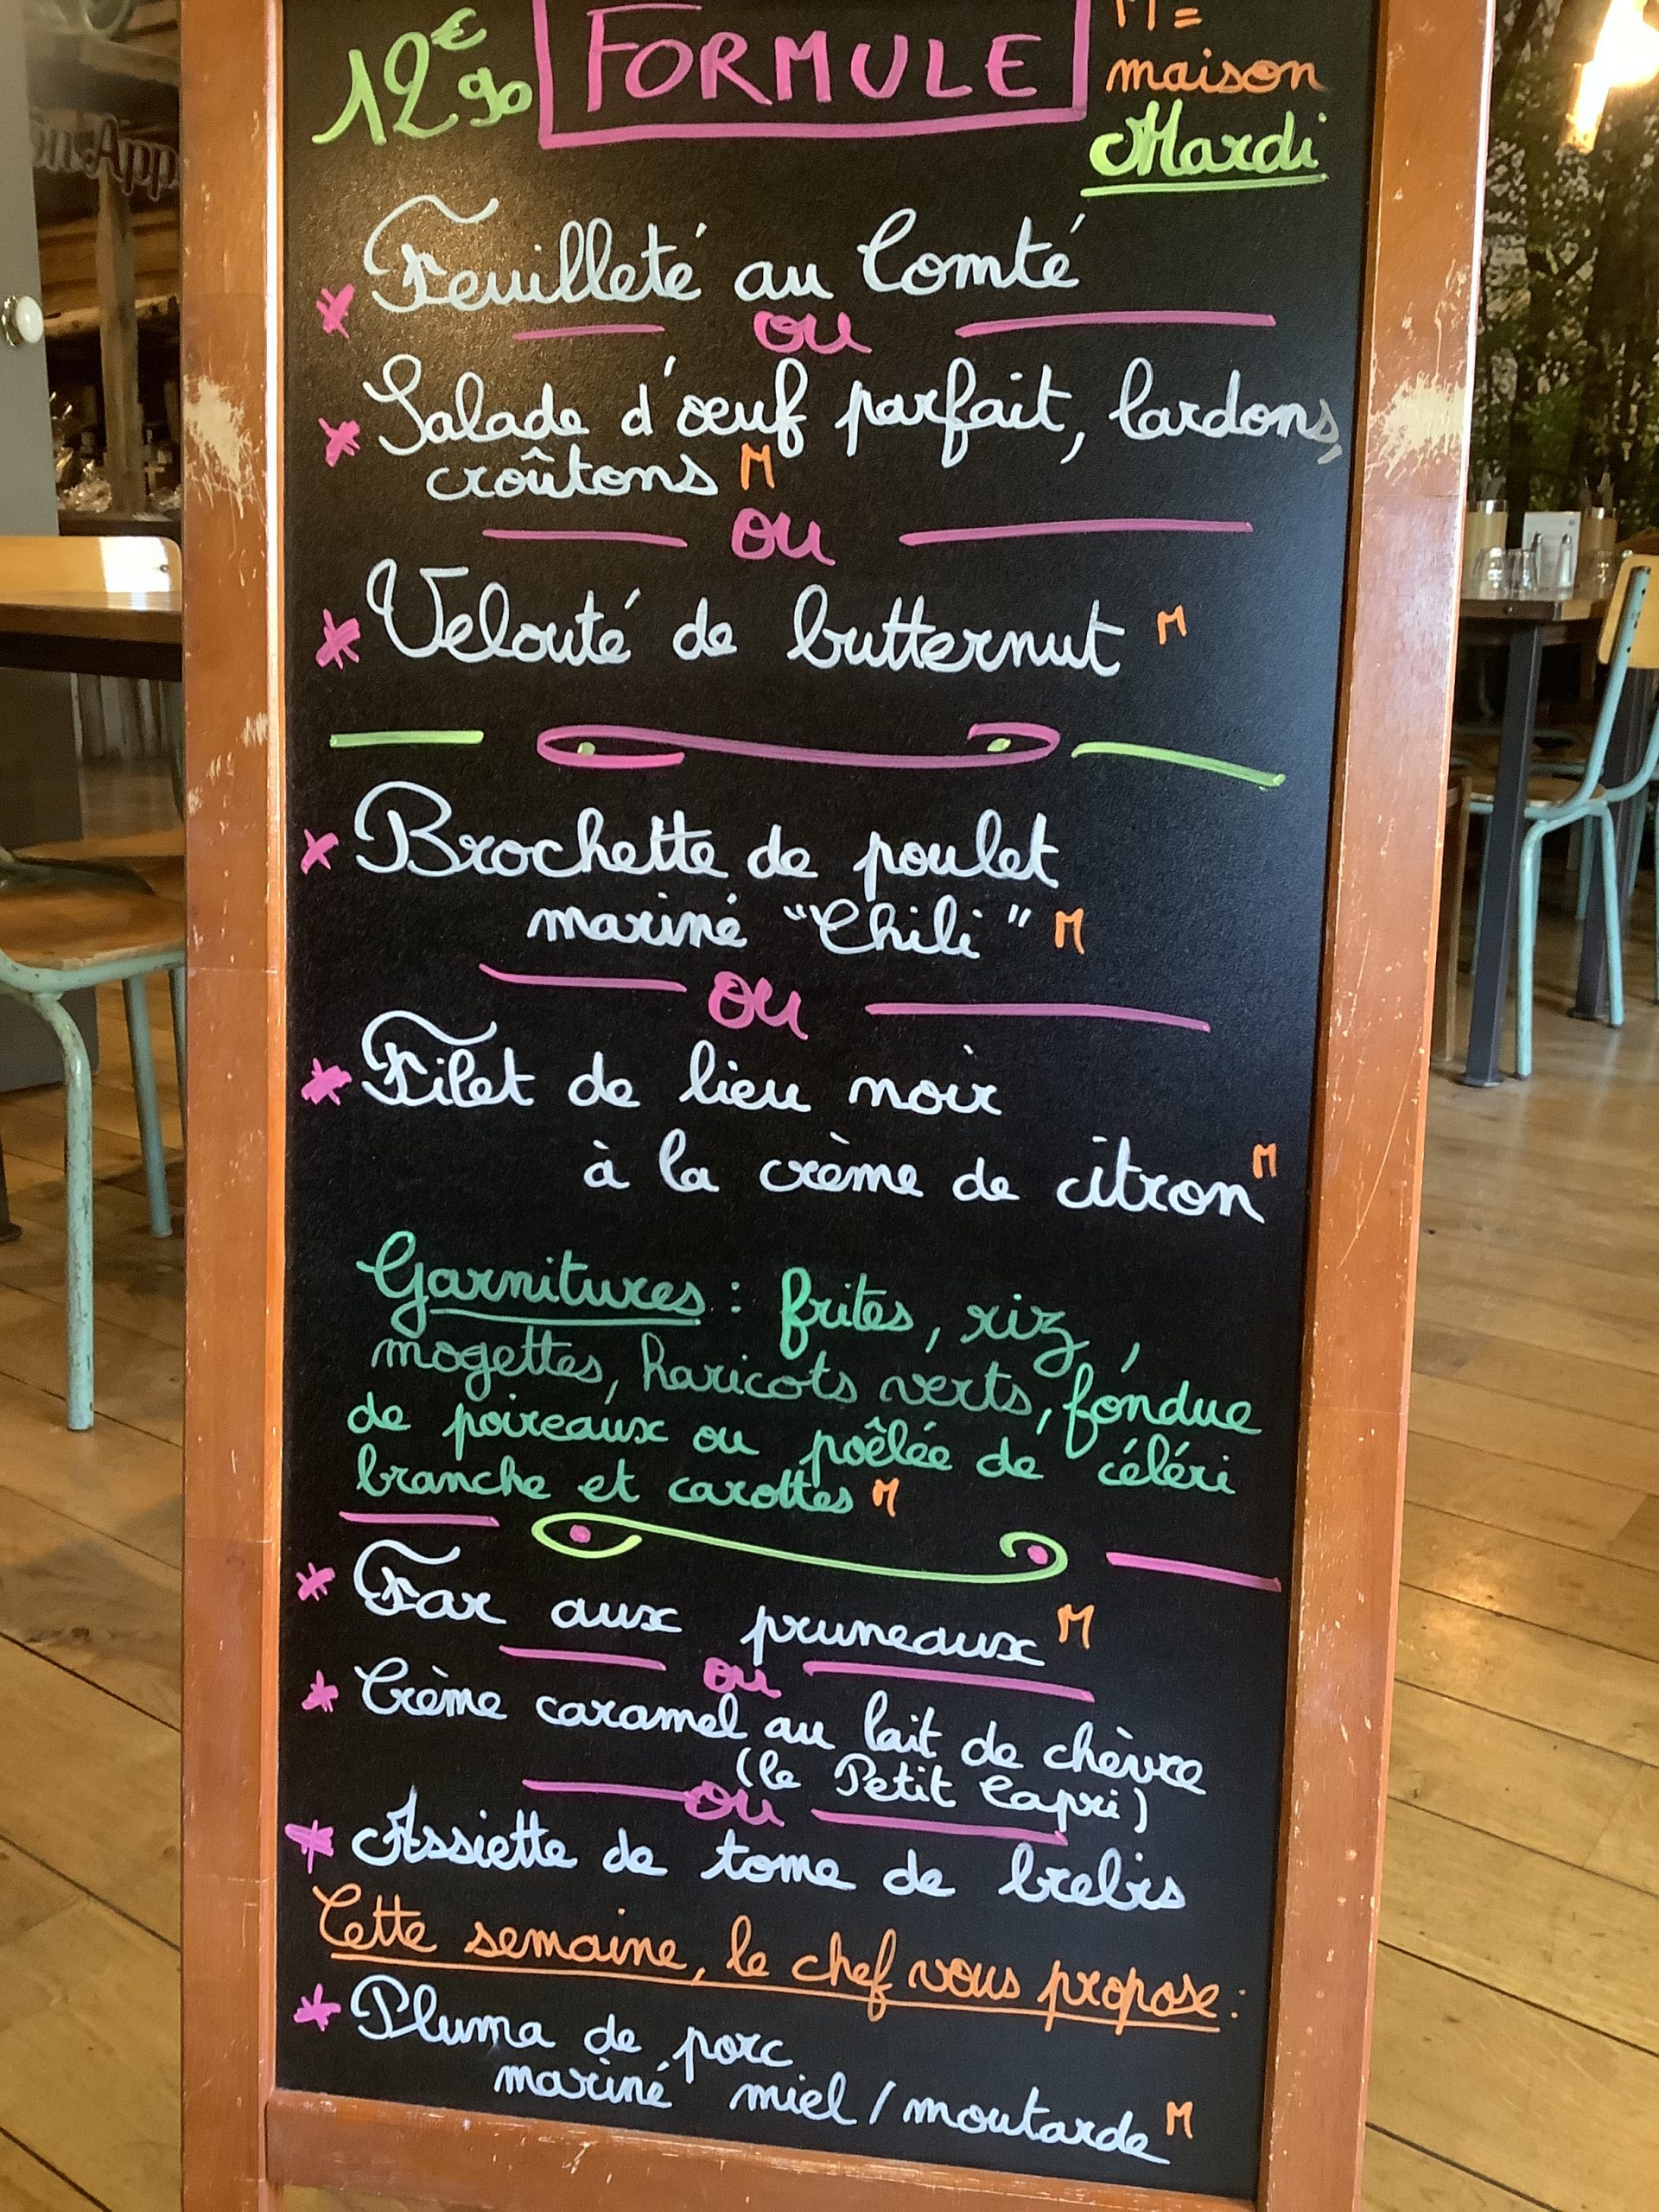 12€90 FORMULE M =
maison
Mardi
* Feuilleté au Comté
ou
* Salade d'œuf parfait, lardons,
croûtons M
ou
* Velouté de butternut M
* Brochette de poulet
mariné "Chili" M
ou
* Filet de lieu noir
à la crème de citron M
Garnitures : frites, riz,
mogettes, haricots verts, fondue
de poireaux ou poêlée de céléri
branche et carottes M
* Far aux pruneaux M
ou
* Crème caramel au lait de chèvre
(le Petit Capri)
ou
* Assiette de tome de brebis
Cette semaine, le chef vous propose :
* Pluma de porc
mariné miel / moutarde M